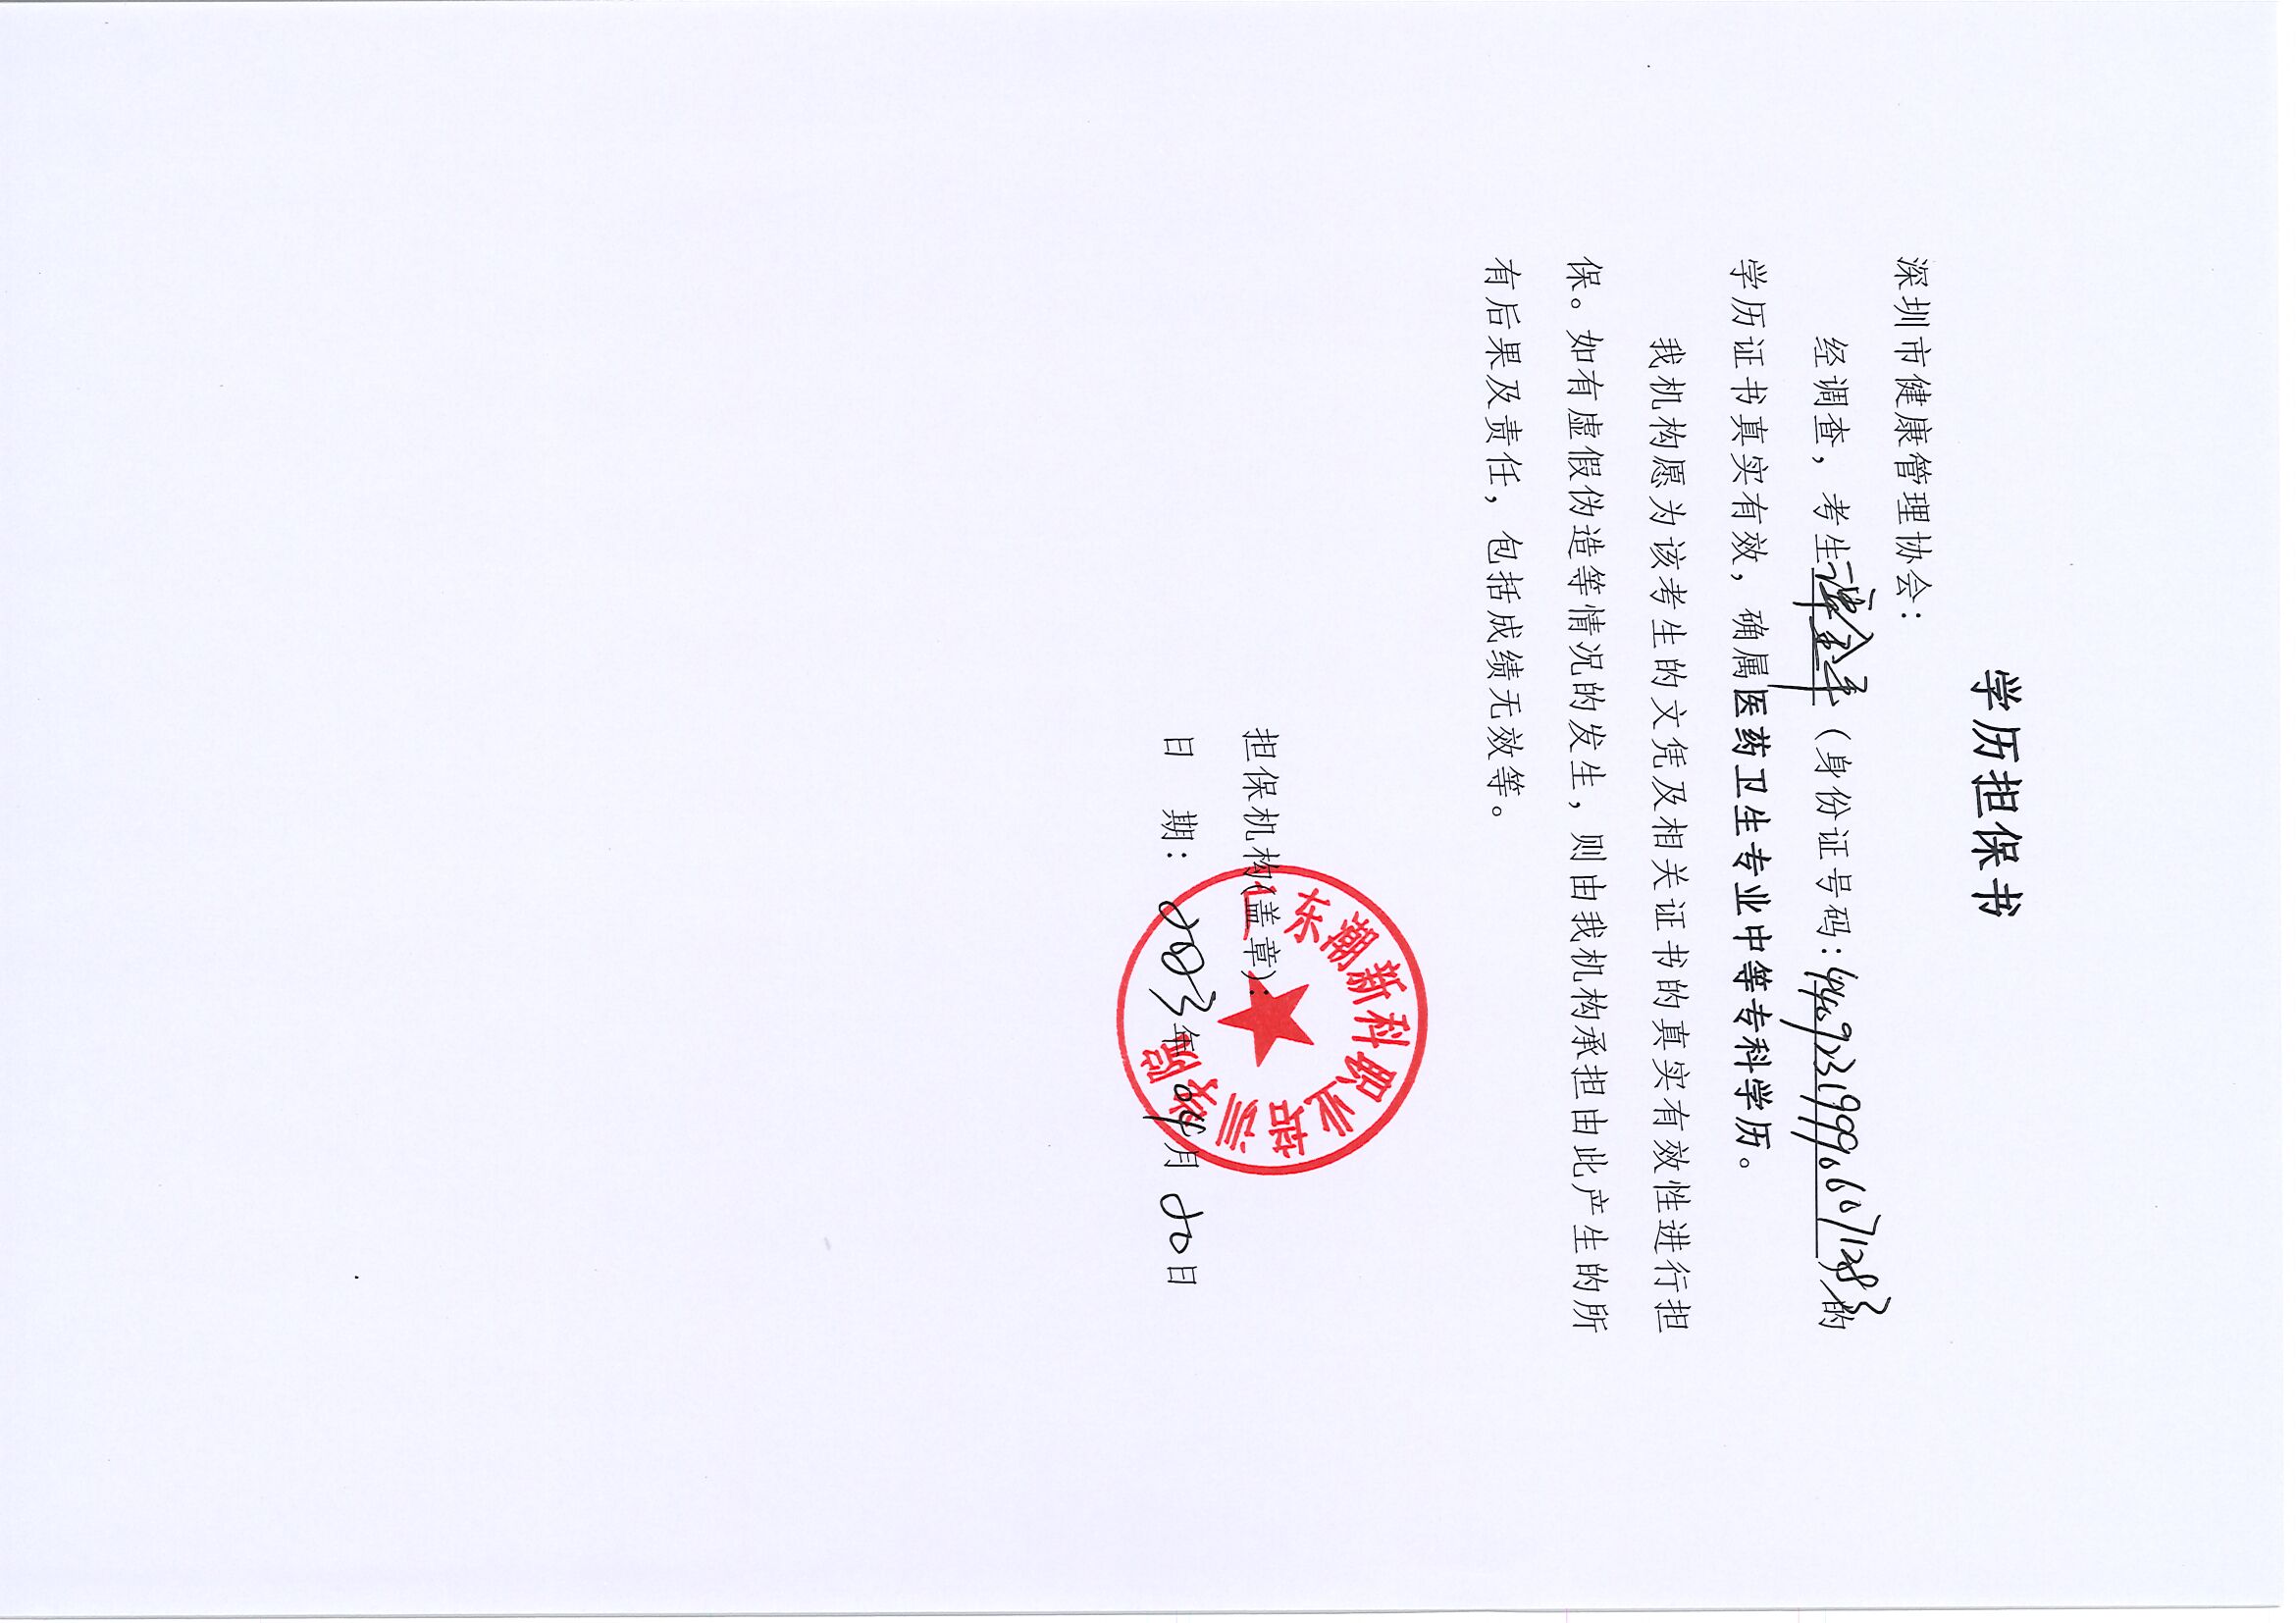 学历担保书
深圳市健康管理协会：
经调查，考生谭金平（身份证号码：440923199906071283的
学历证书真实有效，确属医药卫生专业中等专科学历。
我机构愿为该考生的文凭及相关证书的真实有效性进行担
保。如有虚假伪造等情况的发生，则由我机构承担由此产生的所
有后果及责任，包括成绩无效等。
担保机构(盖章)：
广东潮新科职业培训学院
日 期：2023年04月20日